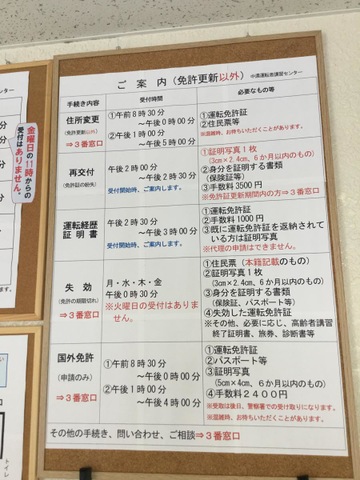 ンター
分
分
分
金曜日の11時からの
受付はありません。
ご案内(免許更新以外)
小濱運転者講習センター
手続き内容
受付時間
必要なもの等
住所変更
(免許更新以外)
⇒3番窓口
①午前8時30分
～午後0時00分
②午後1時00分
～午後5時00分
①運転免許証
②住民票等
※混雑時、お待ちいただくことがあります。
再交付
(免許証の紛失)
⇒3番窓口
午後2時00分
～午後2時30分
受付開始時、ご案内します。
①証明写真1枚
(3cm×2.4cm、6か月以内のもの)
②身分を証明する書類
(保険証等)
③手数料3500円
※免許証更新期間内の方⇒3番窓口
運転経歴
証明書
午後2時30分
～午後3時00分
受付開始時、ご案内します。
①運転免許証
②手数料1000円
③既に運転免許証を返納されて
いる方は証明写真
※代理の申請はできません。
失効
(免許の期限切れ)
⇒3番窓口
月・水・木・金
午後0時30分
※火曜日の受付はありません。
①住民票(本籍記載のもの)
②証明写真1枚
(3cm×2.4cm、6か月以内のもの)
③身分を証明する書類
(保険証、パスポート等)
④失効した運転免許証
※その他、必要に応じ、高齢者講習
終了証明書、旅券、診断書等
国外免許
(申請のみ)
⇒3番窓口
①午前8時30分
～午後0時00分
②午後1時00分
～午後4時00分
①運転免許証
②パスポート等
③証明写真
(5cm×4cm、6か月以内のもの)
④手数料2400円
※受取は後日、警察署での受け取りになります。
※混雑時、お待ちいただくことがあります。
その他の手続き、問い合わせ、ご相談⇒3番窓口
トイレ